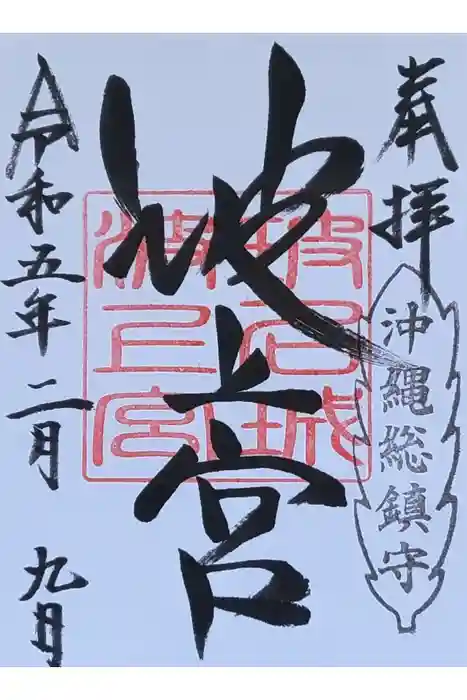 奉拝
沖縄総鎮守
波上宮
名城
波上宮
令和五年二月九日